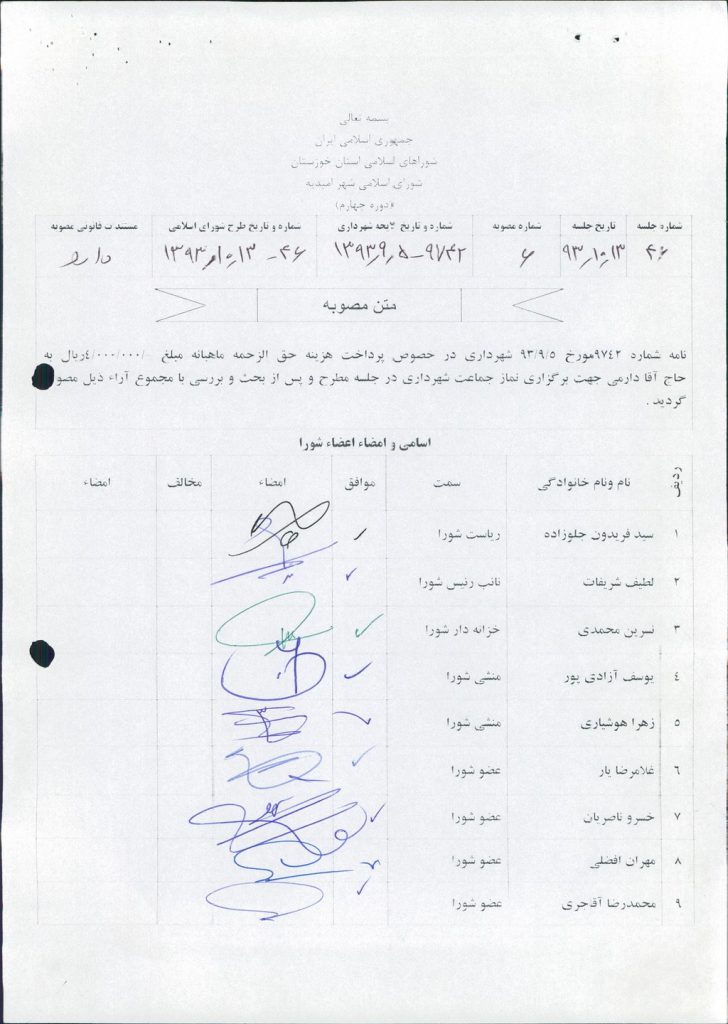 بسمه تعالی
جمهوری اسلامی ایران
شوراهای اسلامی استان خوزستان
شورای اسلامی شهر امیدیه
(دوره چهارم)
شماره جلسه تاریخ جلسه شماره مصوبه شماره و تاریخ لایحه شهرداری شماره و تاریخ طرح شورای اسلامی مستندات قانونی مصوبه
۴۶ ۹۳,۱۰,۱۳ ۶ ۹۷۴۲-۱۳۹۳,۹,۵ ۴۶-۱۳۹۳,۱۰,۱۳ دارد
متن مصوبه
نامه شماره ۹۷۴۲مورخ ۹۳/۹/۵ شهرداری در خصوص پرداخت هزینه حق الزحمه ماهیانه مبلغ ۴/۰۰۰/۰۰۰/-ریال به
حاج آقا دارمی جهت برگزاری نماز جماعت شهرداری در جلسه مطرح و پس از بحث و بررسی با مجموع آراء ذیل مصو
گردید .
اسامی و امضاء اعضاء شورا
ردیف نام ونام خانوادگی سمت موافق امضاء مخالف امضاء
۱ سید فریدون جلوزاده ریاست شورا
۲ لطیف شریفات نائب رئیس شورا
۳ نسرین محمدی خزانه دار شورا
۴ یوسف آزادی پور منشی شورا
۵ زهرا هوشیاری منشی شورا
۶ غلامرضا یار عضو شورا
۷ خسرو ناصریان عضو شورا
۸ مهران افضلی عضو شورا
۹ محمدرضا آقاجری عضو شورا